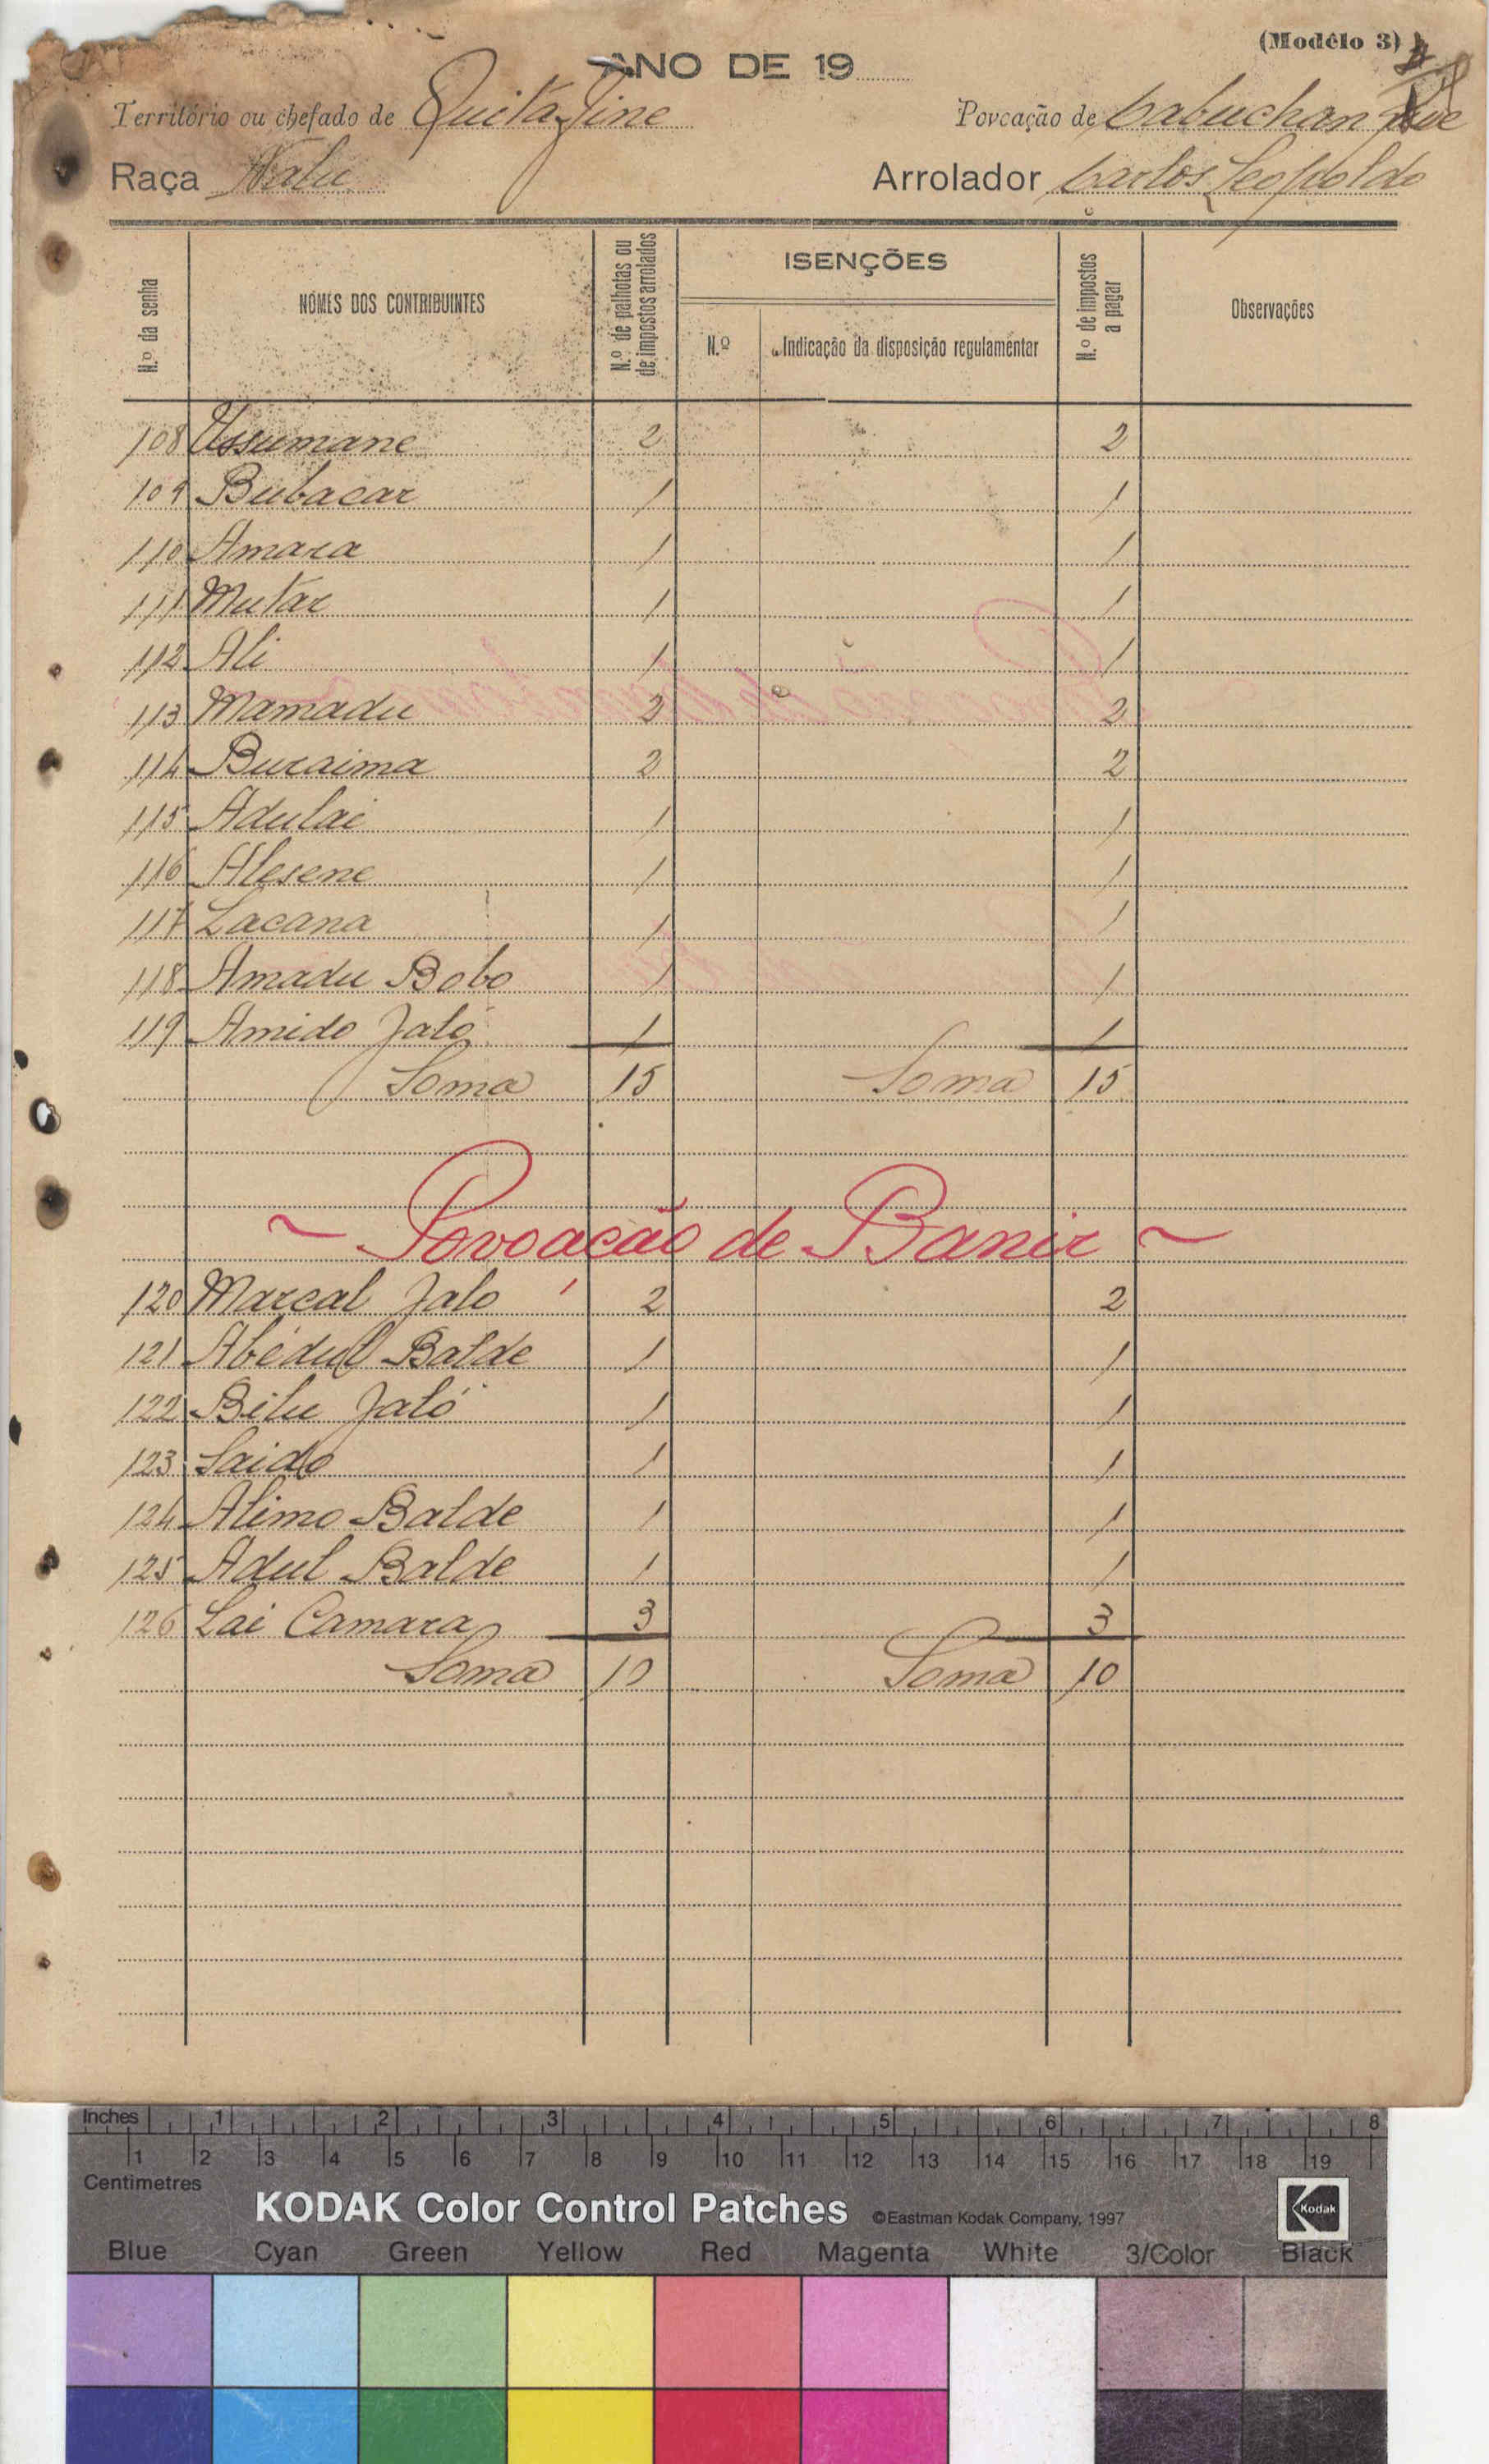 (Modêlo 3)
ANO DE 19
Território ou chefado de Quitafine Povoação de Cabuchanque
Raça Nalu Arrolador Carlos Leopoldo
N.º da senha NOMES DOS CONTRIBUINTES N.º de palhotas ou de impostos arrolados ISENÇÕES N.º de impostos a pagar Observações
N.º Indicação da disposição regulamentar
108 Ussumane 2 2
109 Bubacar 1 1
110 Amara 1 1
111 Mutar 1 1
112 Ali 1 1
113 Mamadu 2 2
114 Buraima 2 2
115 Adulai 1 1
116 Alesene 1 1
117 Lacana 1 1
118 Amadu Bobo 1 1
119 Amido Jaló 1 1
Soma 15 Soma 15
~ Povoação de Banir ~
120 Marçal Jalo 2 2
121 Abédul Balde 1 1
122 Bilu Jaló 1 1
123 Saido 1 1
124 Alimo Balde 1 1
125 Adul Balde 1 1
126 Lai Camara 3 3
Soma 10 Soma 10
Inches 1 2 3 4 5 6 7 8
1 2 3 4 5 6 7 8 9 10 11 12 13 14 15 16 17 18 19
Centimetres
KODAK Color Control Patches ©Eastman Kodak Company, 1997 Kodak
Blue Cyan Green Yellow Red Magenta White 3/Color Black